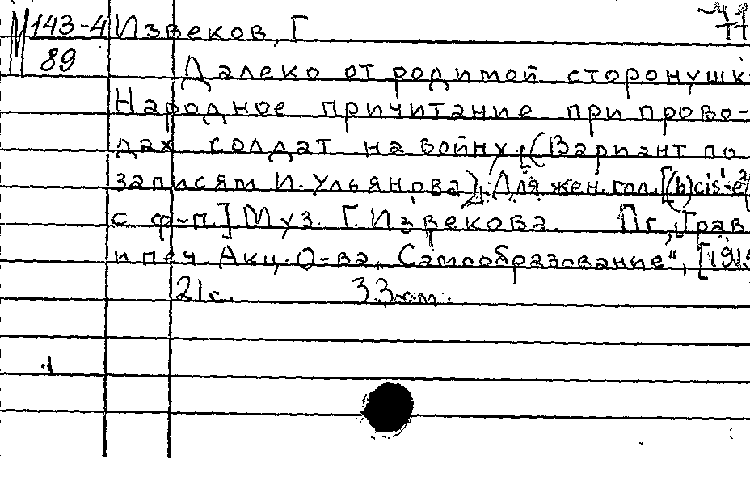 М 143-4 Извеков, Г
89
Далеко от родимой сторонушк
Народное причитание при прово-
дах солдат на войну. (Вариант по
записям И. Ульянова). Для жен. гол. [(h)cis¹-e²
с ф-п.] Муз. Г. Извекова. Пг., Грав
и печ Акц. О-ва „Самообразование“, [1915
21 с. 33 см.